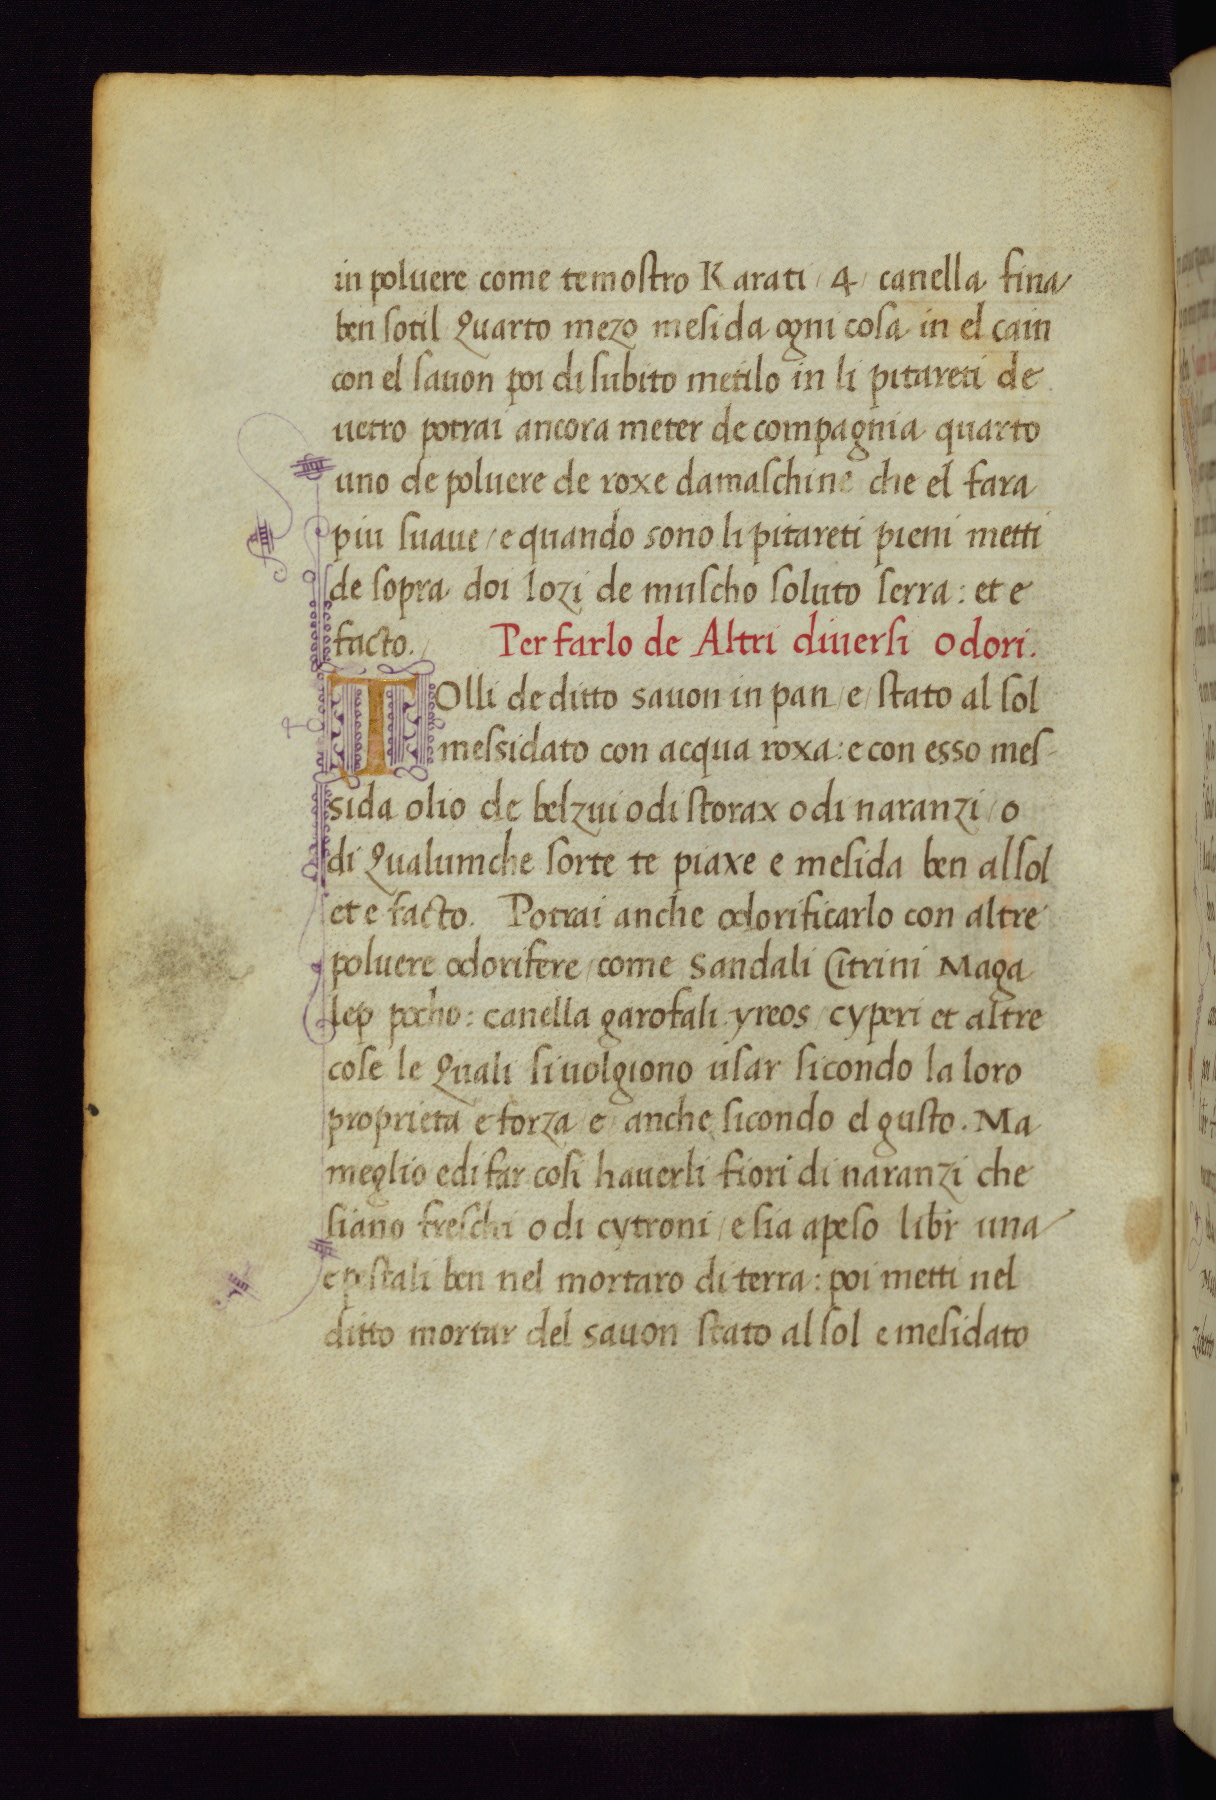 in poluere come te mostro Karati / 4 / canella fina
ben sotil Quarto mezo mesida ogni cosa in el cain
con el sauon poi di subito metilo in li pitareti de
uetro potrai ancora meter de compagnia quarto
uno de poluere de roxe damaschine che el fara
piu suaue / e quando sono li pitareti pieni metti
de sopra doi lozi de muscho soluto serra : et e
facto. / Per farlo de Altri diuersi odori.
TOlli de ditto sauon in pan / e / stato al sol
messidato con acqua roxa : e con esso mes-
sida olio de belzui o di storax o di naranzi / o
di Qualumche sorte te piaxe e mesida ben al sol
et e facto. Potrai anche odorificarlo con altre
poluere odorifere / come Sandali Citrini Maga
lep pocho : canella garofali . yreos / cyperi et altre
cose le Quali si uolgiono usar sicondo la loro
proprieta e forza / e / anche sicondo el gusto . Ma
meglio e di far cosi hauerli fiori di naranzi che
siano freschi o di cytroni / e sia apeso libr una
e pestali ben nel mortaro di terra : poi metti nel
ditto mortar del sauon stato al sol e mesidato